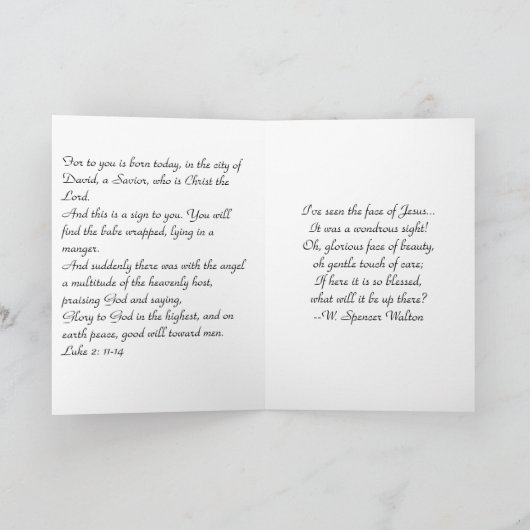 For to you is born today, in the city of
David, a Savior, who is Christ the
Lord.
And this is a sign to you. You will
find the babe wrapped, lying in a
manger.
And suddenly there was with the angel
a multitude of the heavenly host,
praising God and saying,
Glory to God in the highest, and on
earth peace, good will toward men.
Luke 2: 11-14
I've seen the face of Jesus...
It was a wondrous sight!
Oh, glorious face of beauty,
oh gentle touch of care;
If here it is so blessed,
what will it be up there?
--W. Spencer Walton